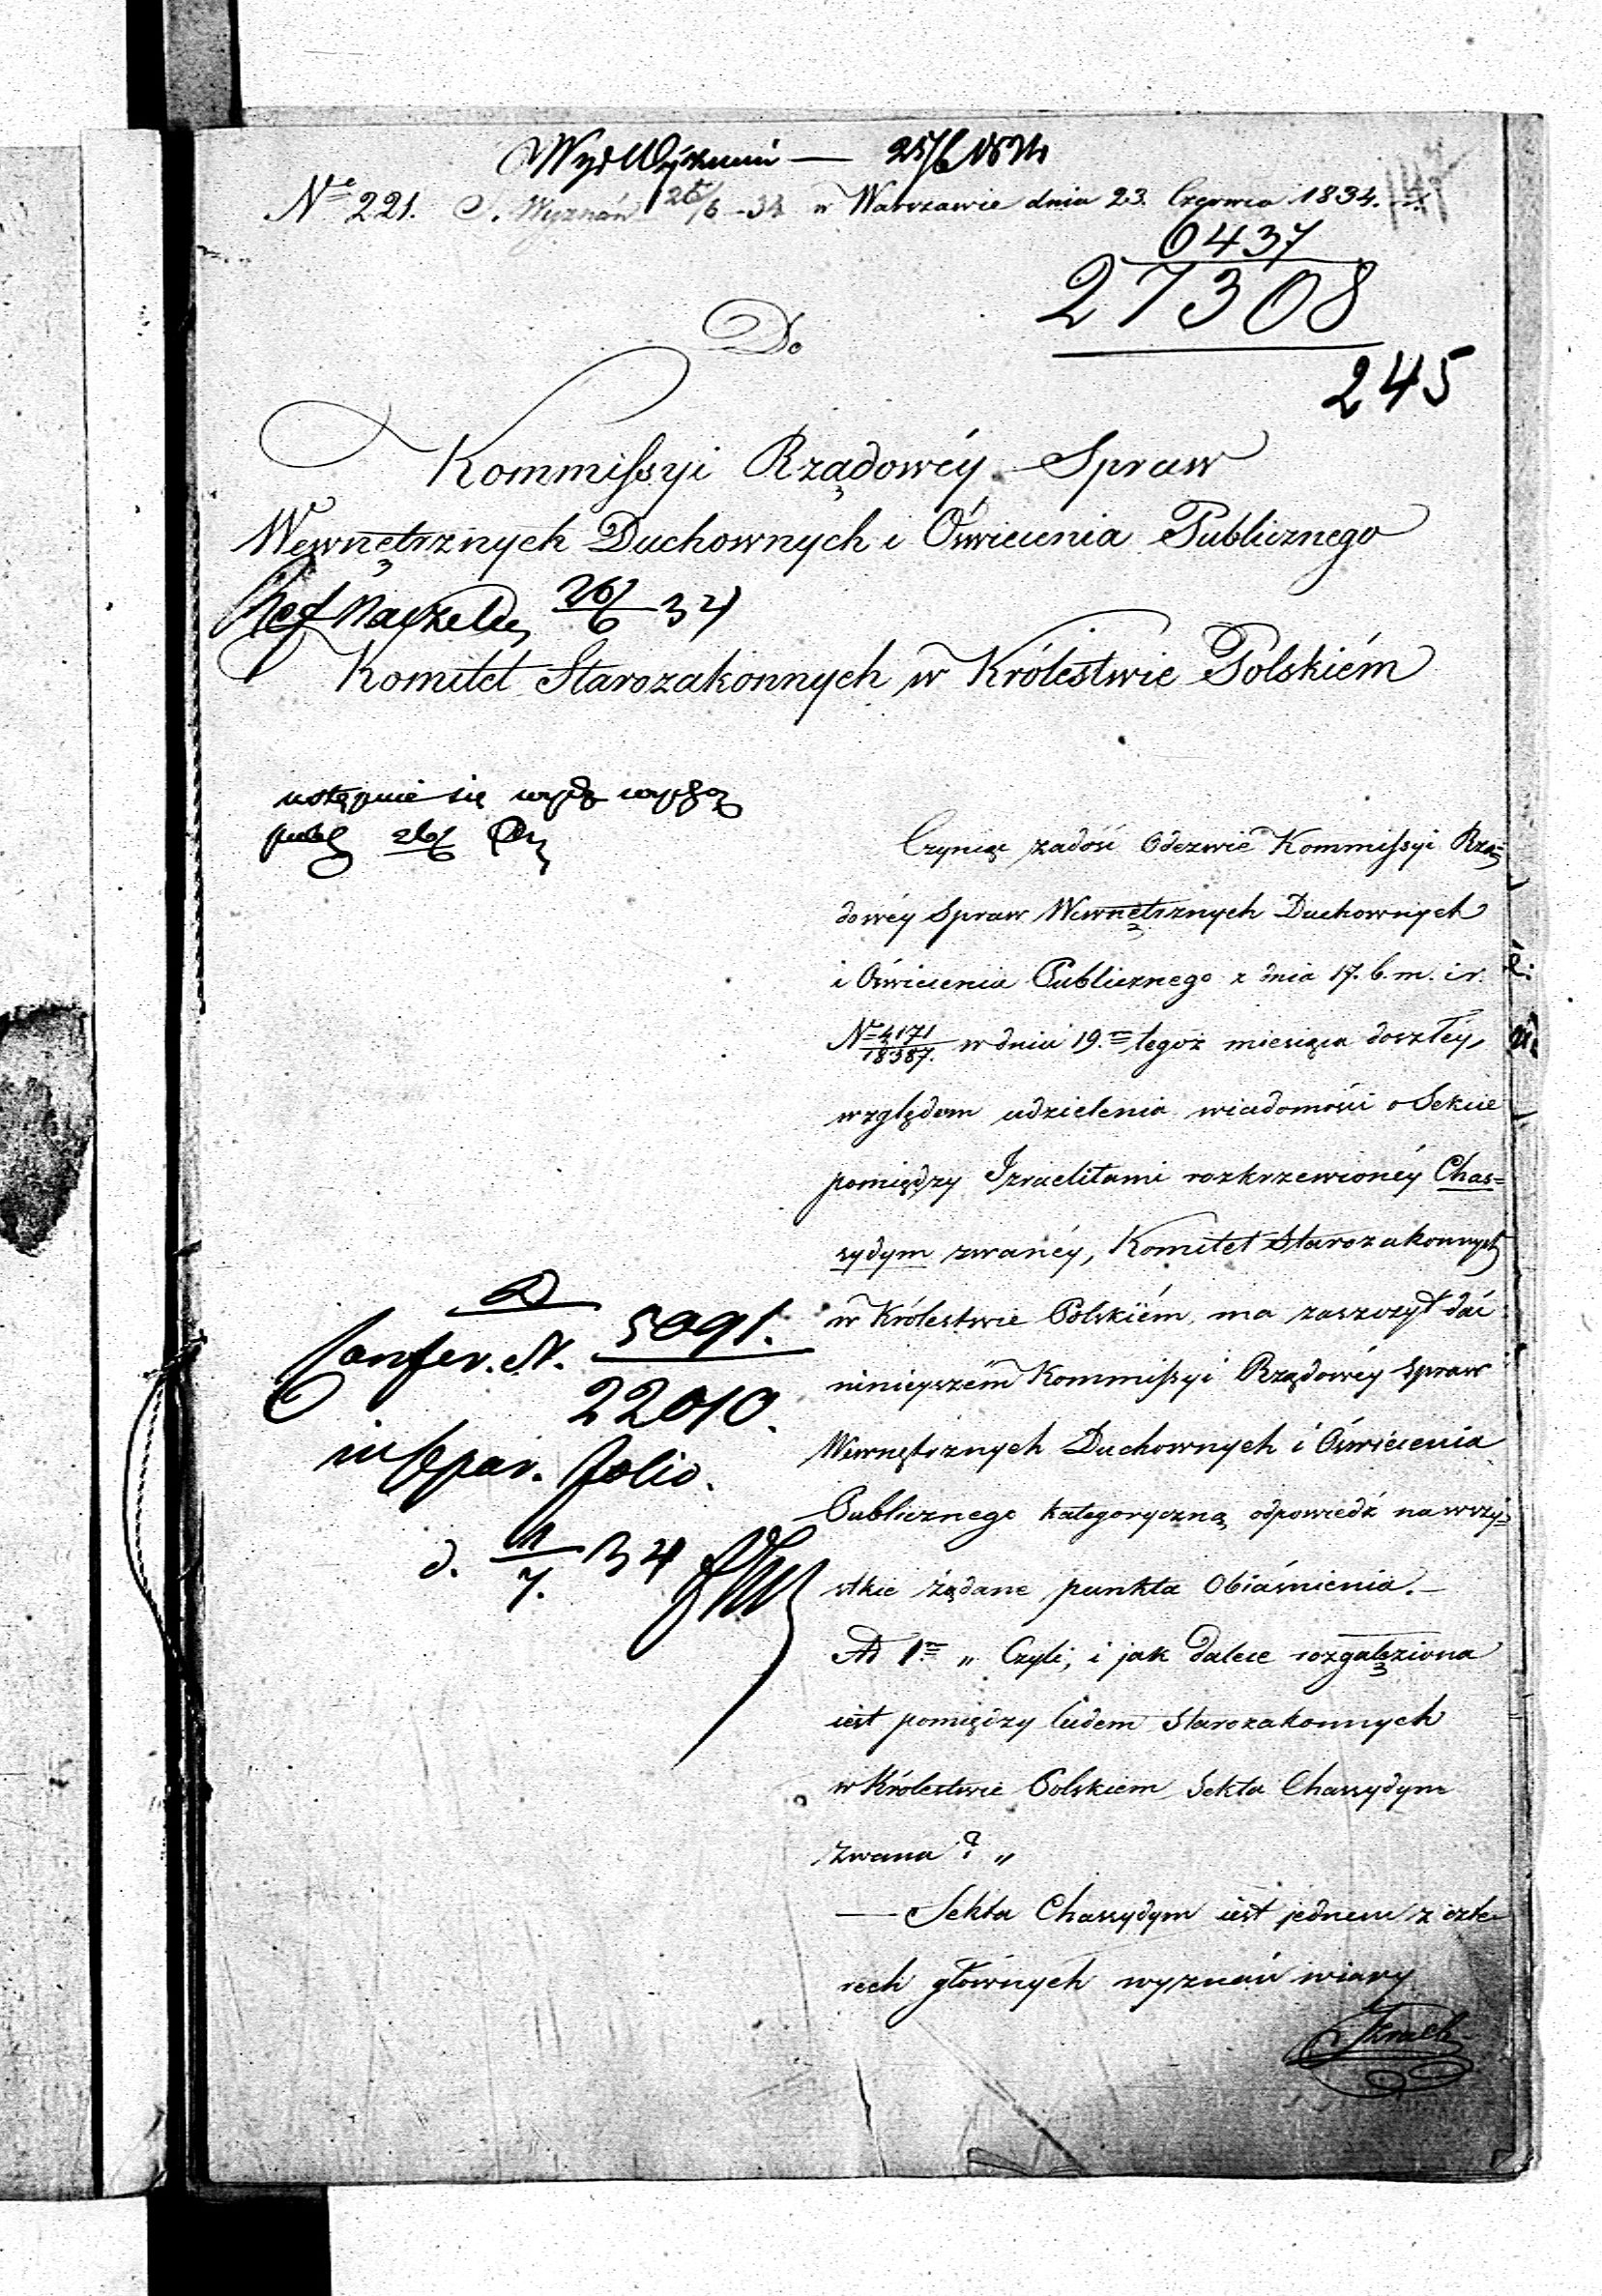 Wyd Wyznań — 25/6 1834
№ 221. S. Wyznań 25/6 - 34 w Warszawie dnia 23. Czerwca 1834. r.
147
6437
27308
245
Do
Kommissyi Rządowéy Spraw
Wewnętrznych Duchownych i Oświecenia Publicznego
26/6 34
Komitet Starozakonnych w Królestwie Polskiém
ustępuie się
26/6
Czyniąc zadość Odezwie Kommissyi Rzą=
dowéy Spraw Wewnętrznych Duchownych
i Oświecenia Publicznego z dnia 17. b. m. i r.
№ 4171/18387. w dniu 19.m tegoż miesiąca doszłéy,
względem udzielenia wiadomości o Sekcie
pomiędzy Izraelitami rozkrzewionéy Chas=
sydym zwanéy, Komitet Starozakonnych
w Królestwie Polskiém, ma zaszczyt dać
ninieyszém Kommissyi Rządowéy Spraw
Wewnętrznych Duchownych i Oświecenia
Publicznego kategoryczną odpowiedź na wszy=
stkie żądane punkta Obiaśnienia.—
Ad 1m „ Czyli, i jak dalece rozgałęziona
iest pomiędzy ludem Starozakonnych
w Królestwie Polskiem Sekta Chassydym
zwana? „
— Sekta Chassydym iest jednem z czte=
rech głównych wyznań wiary
Izrael=
Confer. N. 5091.
22010.
in separ. folio.
d. 11/7. 34